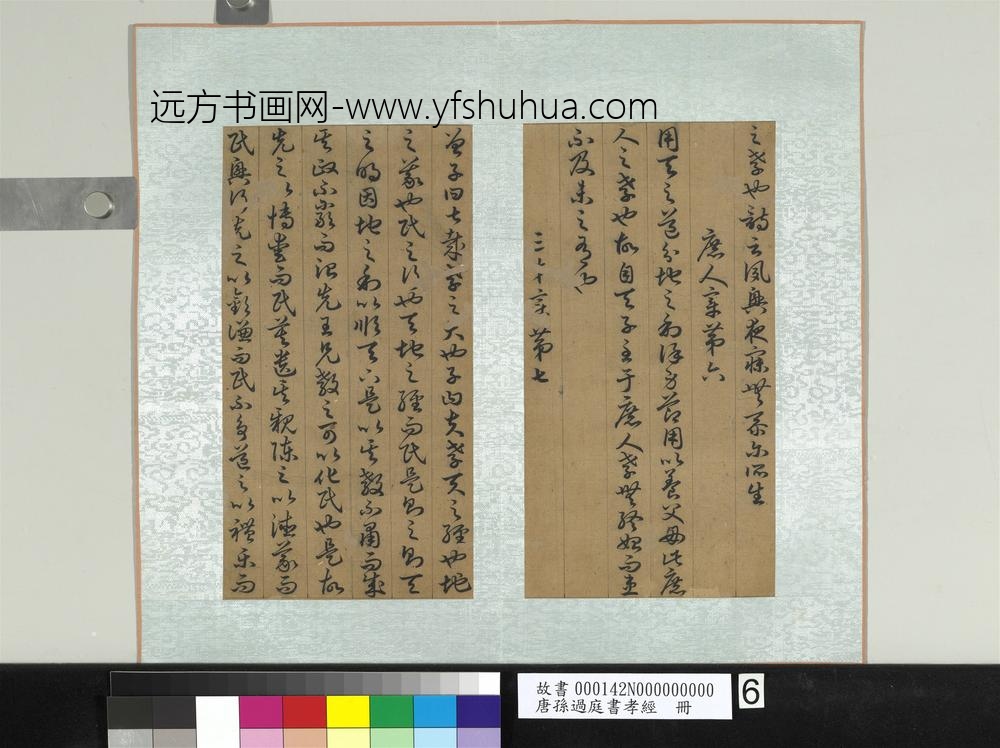 远方书画网-www.yfshuhua.com
之孝也詩云夙興夜寐無忝尔所生
庶人章第六
用天之道分地之利謹身節用以養父母此庶
人之孝也故自天子至于庶人孝無終始而患
不及未之有也
三才章第七
曾子曰甚哉孝之大也子曰夫孝天之經也地
之義也民之行也天地之經而民是則之則天
之明因地之利以順天下是以其教不肅而成
其政不嚴而治先王見教之可以化民也是故
先之以博愛而民莫遺其親陳之以德義而
民興行先之以敬讓而民不爭道之以禮樂而
故書 000142N000000000
唐孫過庭書孝經 冊
6